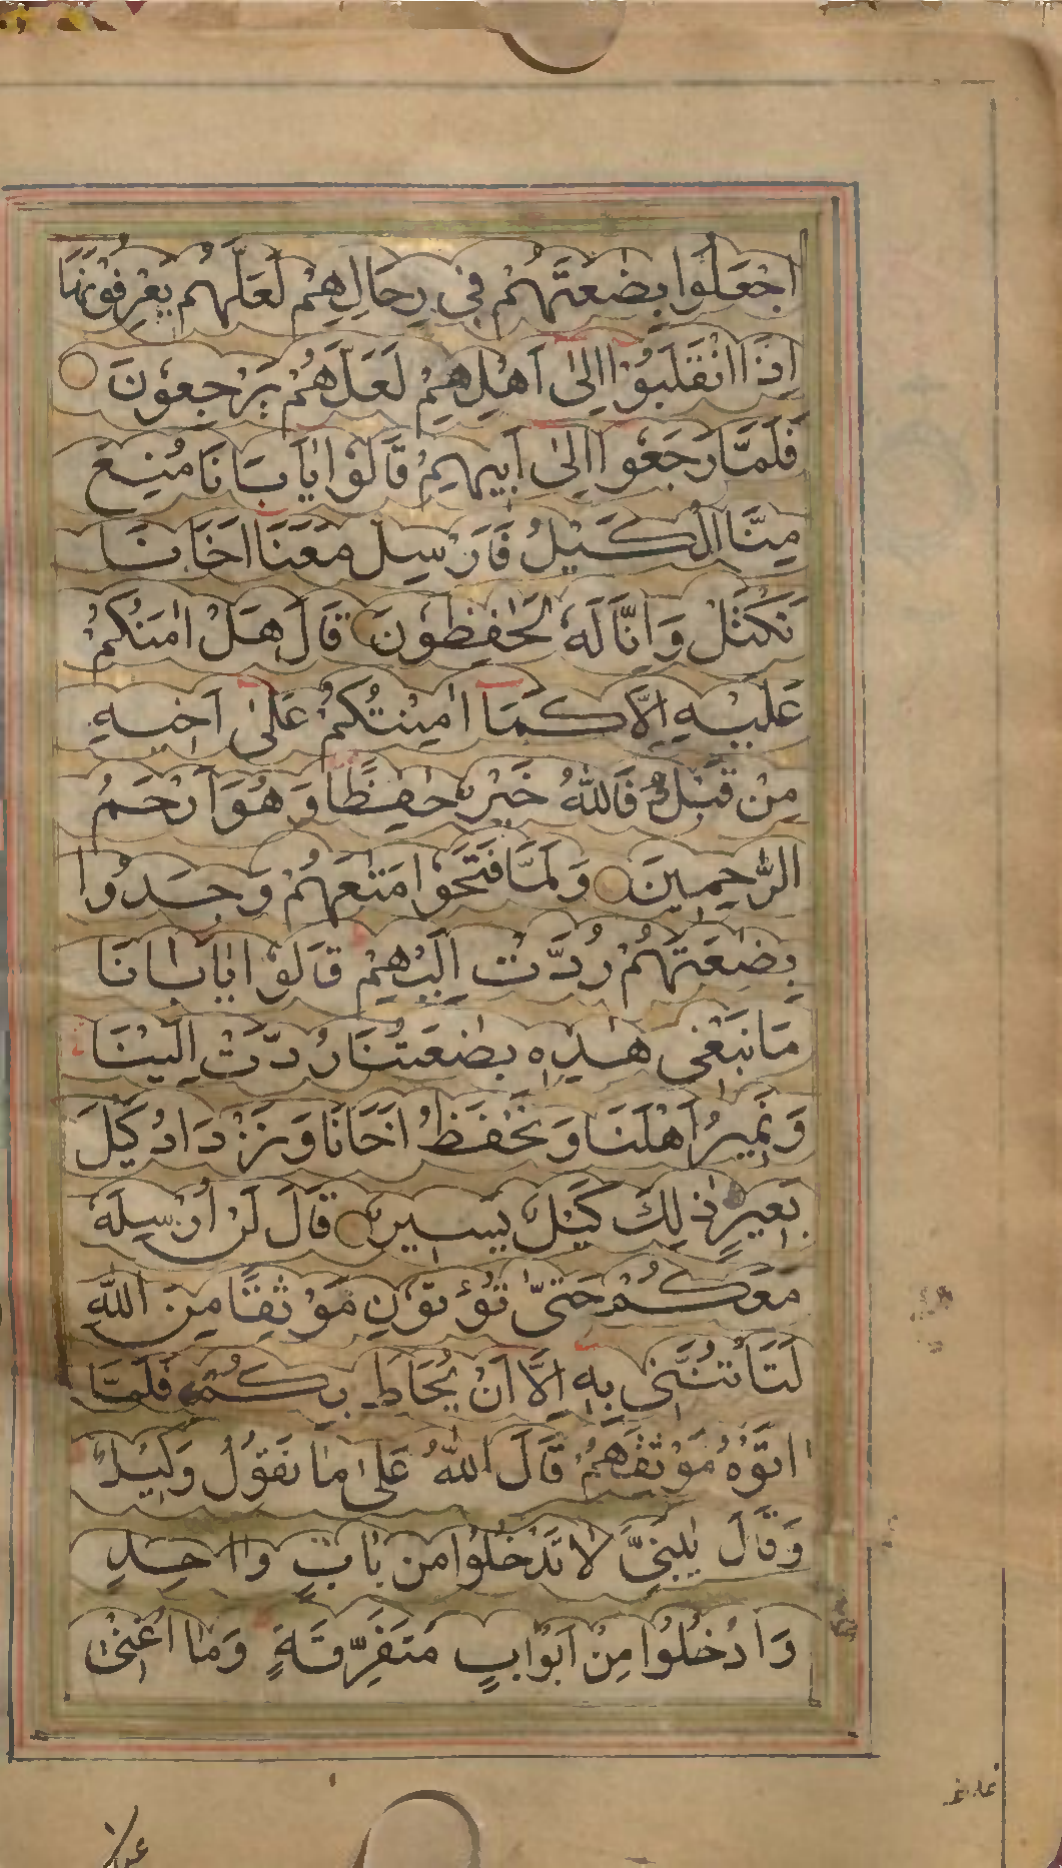 اجْعَلُوا بِضٰعَتَهُمْ فِى رِحَالِهِمْ لَعَلَّهُمْ يَعْرِفُوْنَهَا
اِذَا انْقَلَبُوْا اِلٰى اَهْلِهِمْ لَعَلَّهُمْ يَرْجِعُوْنَ
فَلَمَّا رَجَعُوا اِلٰى اَبِيهِمْ قَالُوْا يٰاَبَانَا مُنِعَ
مِنَّا الْكَيْلُ فَاَرْسِلْ مَعَنَا اَخَانَا
نَكْتَلْ وَاِنَّا لَهٗ لَحٰفِظُوْنَ قَالَ هَلْ اٰمَنُكُمْ
عَلَيْهِ اِلَّا كَمَا اَمِنْتُكُمْ عَلٰى اَخِيهِ
مِنْ قَبْلُ فَاللّٰهُ خَيْرٌ حٰفِظًا وَهُوَ اَرْحَمُ
الرّٰحِمِينَ وَلَمَّا فَتَحُوْا مَتٰعَهُمْ وَجَدُوا
بِضٰعَتَهُمْ رُدَّتْ اِلَيْهِمْ قَالُوْا يٰاَبَانَا
مَا نَبْغِى هٰذِهٖ بِضٰعَتُنَا رُدَّتْ اِلَيْنَا
وَنَمِيرُ اَهْلَنَا وَنَحْفَظُ اَخَانَا وَنَزْدَادُ كَيْلَ
بَعِيرٍ ذٰلِكَ كَيْلٌ يَسِيرٌ قَالَ لَنْ اُرْسِلَهٗ
مَعَكُمْ حَتّٰى تُؤْتُوْنِ مَوْثِقًا مِنَ اللّٰهِ
لَتَاْتُنَّنِى بِهٖ اِلَّا اَنْ يُحَاطَ بِكُمْ فَلَمَّا
اٰتَوْهُ مَوْثِقَهُمْ قَالَ اللّٰهُ عَلٰى مَا نَقُوْلُ وَكِيْلٌ
وَقَالَ يٰبَنِىَّ لَا تَدْخُلُوْا مِنْ بَابٍ وَاحِدٍ
وَادْخُلُوْا مِنْ اَبْوَابٍ مُتَفَرِّقَةٍ وَمَا اُغْنِىْ